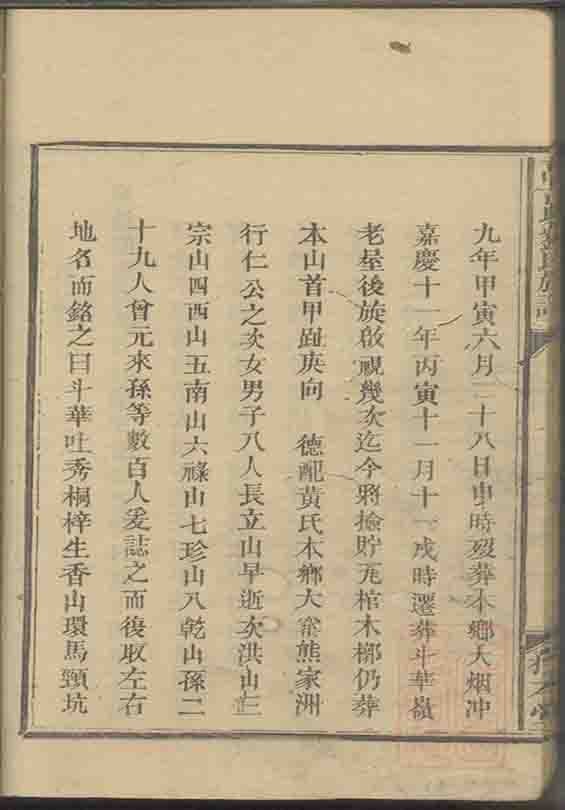 九年甲寅六月二十八日申時歿葬本鄉大烟冲
嘉慶十一年丙寅十一月十一戌時遷葬斗華嶺
老屋後旋啟視幾次迄今將撿貯瓦棺木槨仍葬
本山首甲趾庚向 德配黃氏本鄉大㟥熊家洲
行仁公之次女男子八人長立山早逝次洪山三
宗山四西山五南山六祿山七珍山八乾山孫二
十九人曾元來孫等數百人爰誌之而後取左右
地名而銘之曰斗華吐秀桐梓生香山環馬頸坑